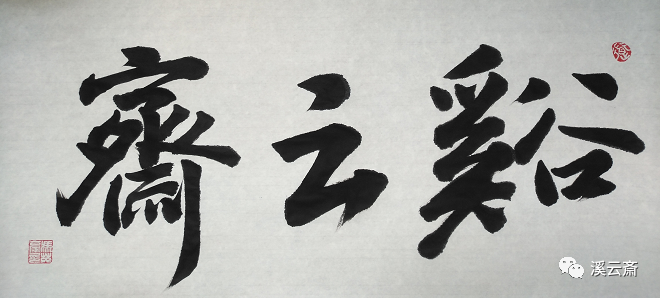 谿云齋
溪云斋